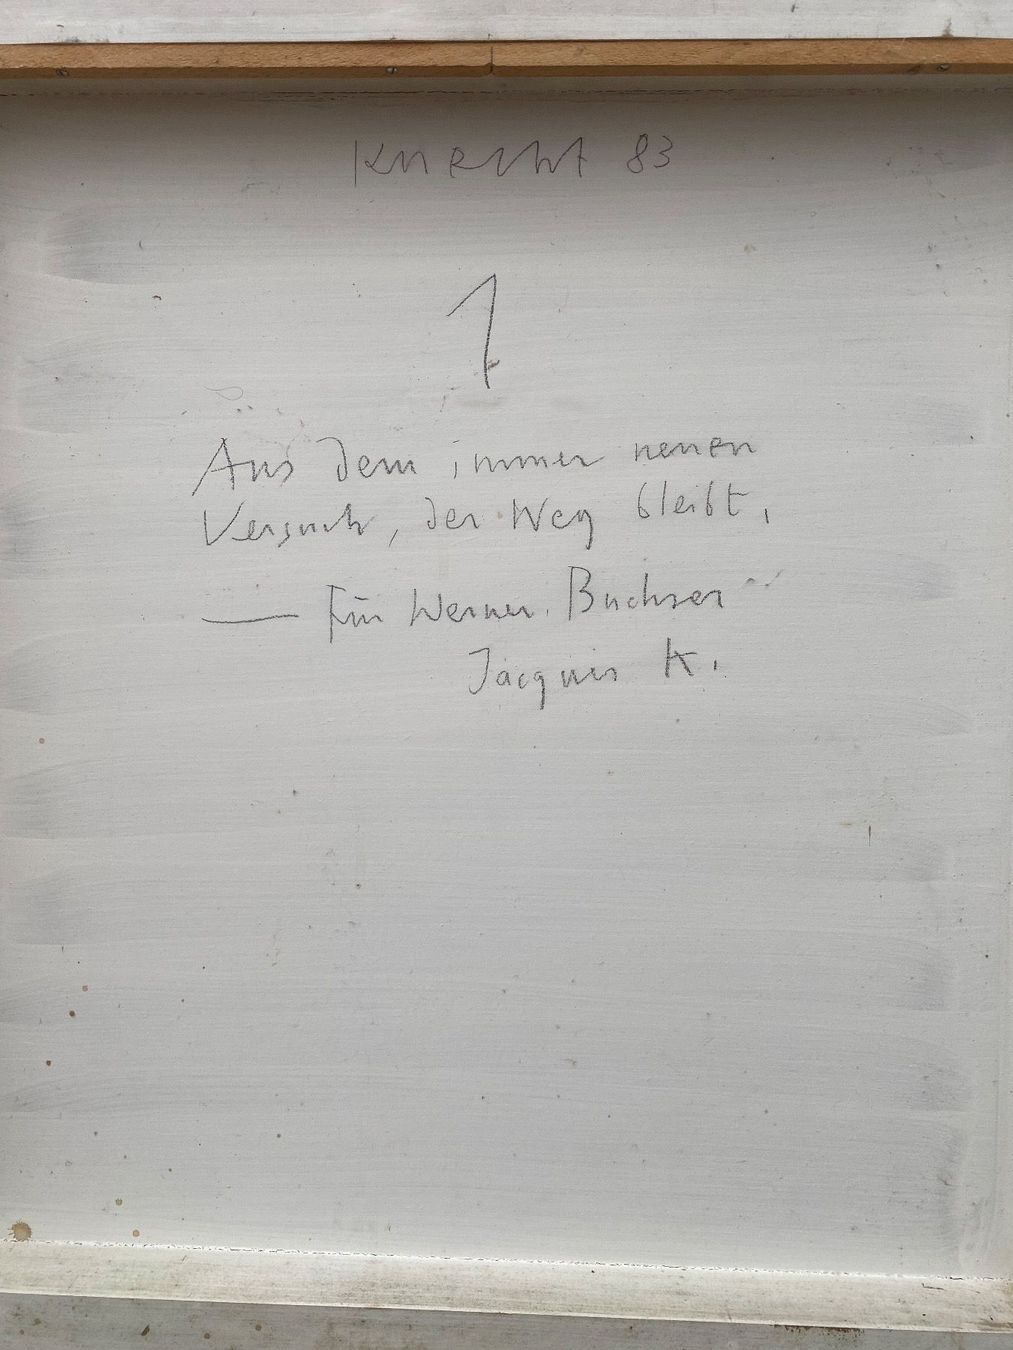 Knecht 83
1
Aus dem immer neuen
Versuch, der Weg bleibt,
— Für Werner Buchser
Jacques K.